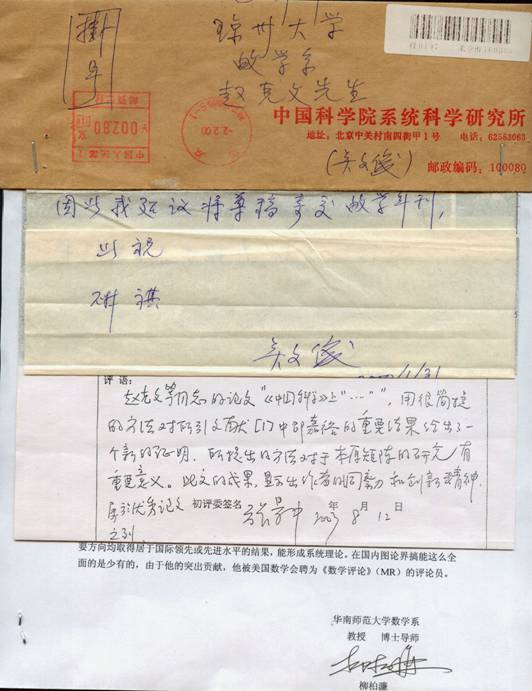 挂号
琼州大学
数学系
赵克文先生
00280
2.2.00
中国科学院系统科学研究所
地址：北京中关村南四街甲1号 电话：62553063
(吴文俊)
邮政编码：100080
因此我建议将尊稿寄交数学年刊，
此祝
研祺
吴文俊
评语：
赵克文等同志的论文“《中国科学》上“……””，用很简捷
的方法对所引文献[1]中邵嘉裕的重要结果给出了一
个新的证明，所提出的方法对于本原矩阵的研究有
重要意义。此文的成果，显示出作者的勤奋和创新精神，
属于优秀论文
之列
初评委签名 张景中 2003年8月12日
要方向均取得居于国际领先或先进水平的结果，能形成系统理论。在国内图论界搞能这么全
面的是少有的，由于他的突出贡献，他被美国数学会聘为《数学评论》（MR）的评论员。
华南师范大学数学系
教授 博士导师
柳柏濂